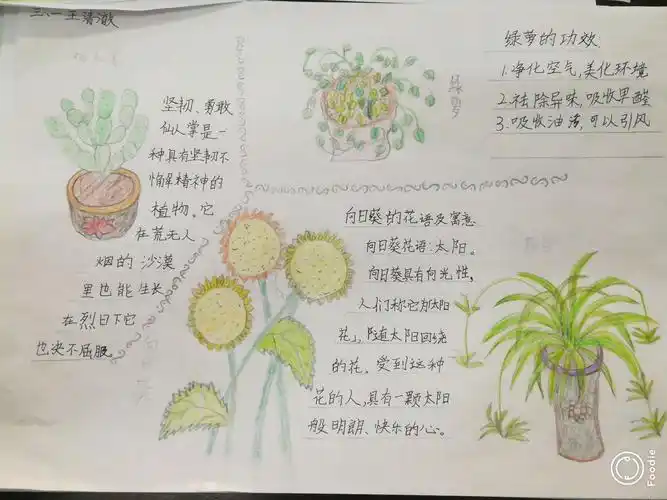 三、一 王清澈
坚韧、勇敢
仙人掌是一
种具有坚韧不
惧保精神的
植物。它
在荒无人
烟的沙漠
里也能生长
在烈日下它
也决不屈服
绿萝
绿萝的功效:
1.净化空气,美化环境
2.祛除异味,吸收甲醛
3.吸收油渍,可以引风
向日葵的花语及寓意:
向日葵花语:太阳。
向日葵具有向光性,
人们称它为太阳
花」,随太阳回绕
的花。受到这种
花的人,具有一颗太阳
般明朗、快乐的心。
Foodie